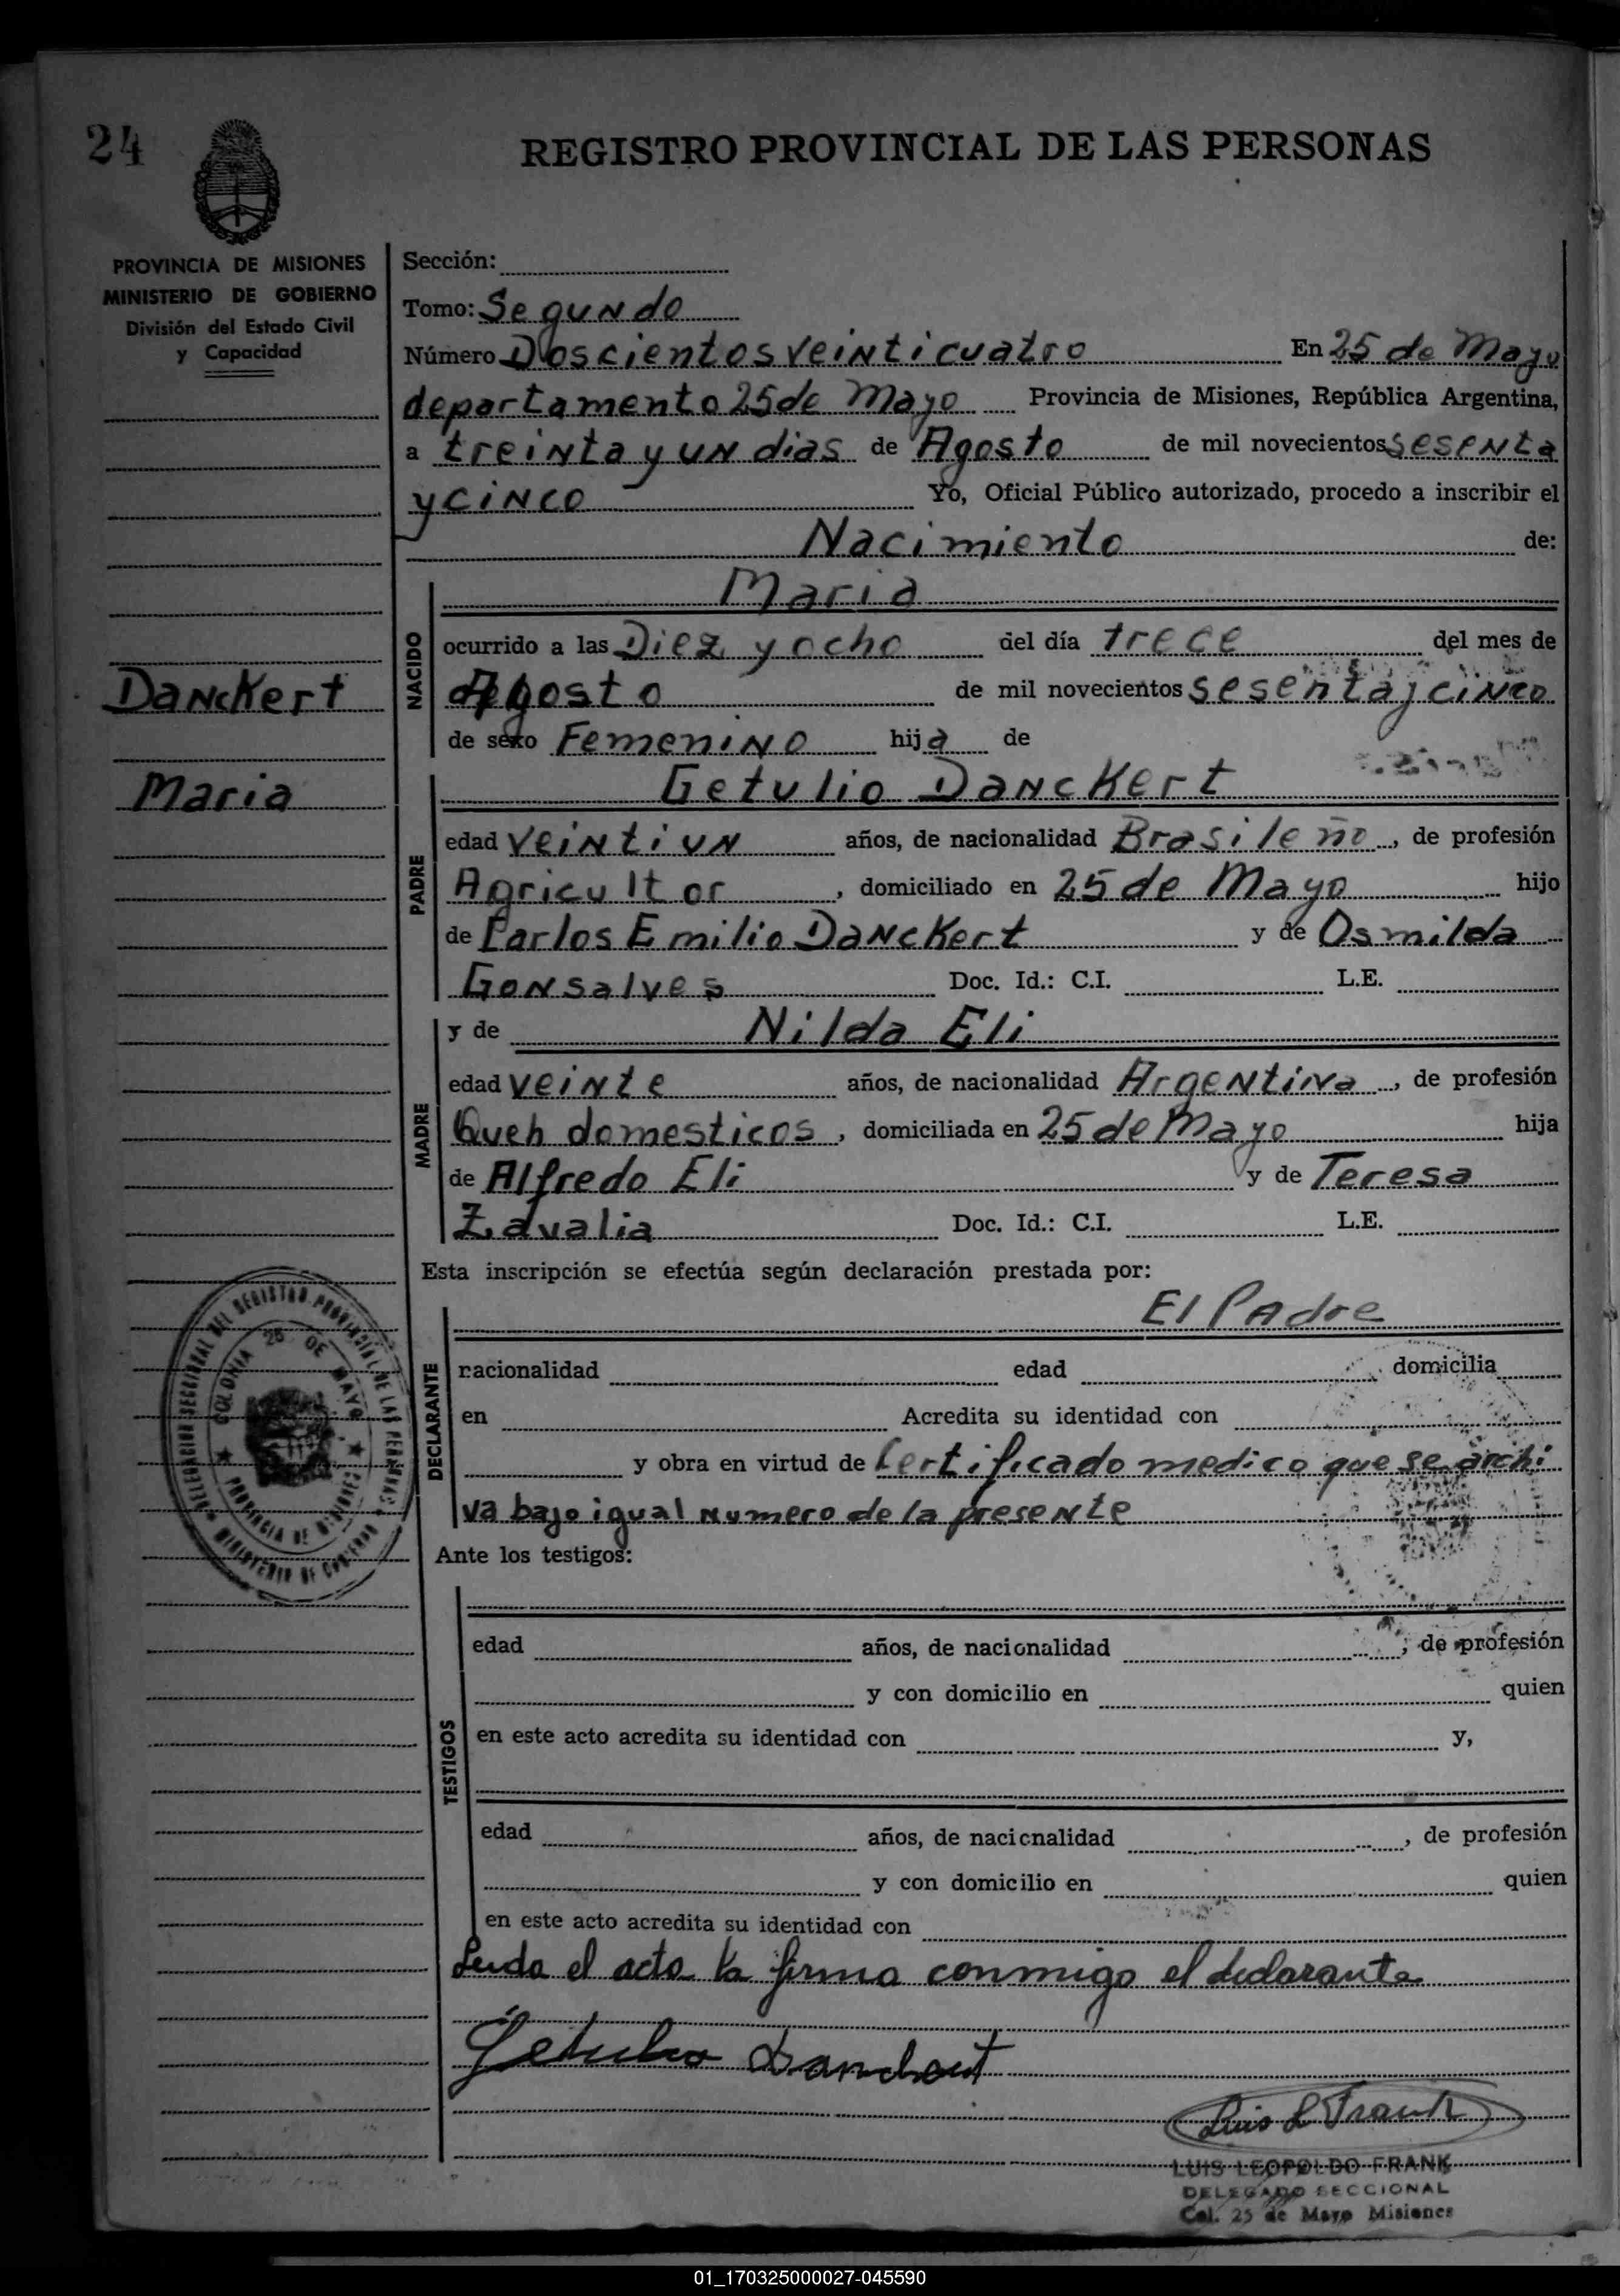 24
REGISTRO PROVINCIAL DE LAS PERSONAS
PROVINCIA DE MISIONES
MINISTERIO DE GOBIERNO
División del Estado Civil
y Capacidad
Danckert
Maria
Sección:
Tomo: Segundo
Número Doscientos veinticuatro En 25 de Mayo
departamento 25 de Mayo Provincia de Misiones, República Argentina,
a treinta y un dias de Agosto de mil novecientos sesenta
y cinco Yo, Oficial Público autorizado, procedo a inscribir el
Nacimiento de:
NACIDO
Maria
ocurrido a las Diez y ocho del día trece del mes de
Agosto de mil novecientos sesenta y cinco
de sexo Femenino hija de
PADRE
Getulio Danckert
edad veintiun años, de nacionalidad Brasileño, de profesión
Agricultor, domiciliado en 25 de Mayo hijo
de Carlos Emilio Danckert y de Osmilda
Gonsalves Doc. Id.: C.I. L.E.
MADRE
y de Nilda Eli
edad veinte años, de nacionalidad Argentina, de profesión
Queh domesticos, domiciliada en 25 de Mayo hija
de Alfredo Eli y de Teresa
Zavalia Doc. Id.: C.I. L.E.
Esta inscripción se efectúa según declaración prestada por:
DECLARANTE
El Padre
nacionalidad edad domicilia
en Acredita su identidad con
y obra en virtud de Certificado medico que se archi
va bajo igual numero de la presente
DELEGACION SECCIONAL DEL REGISTRO PROVINCIAL DE LAS PERSONAS
MINISTERIO DE GOBIERNO
COLONIA 25 DE MAYO
PROVINCIA DE MISIONES
Ante los testigos:
TESTIGOS
edad años, de nacionalidad , de profesión
y con domicilio en quien
en este acto acredita su identidad con y,
edad años, de nacionalidad , de profesión
y con domicilio en quien
en este acto acredita su identidad con
Leida el acta la firma conmigo el declarante
Getulio Danckert
Luis L Frank
LUIS LEOPOLDO FRANK
DELEGADO SECCIONAL
Col. 25 de Mayo Misiones
01_170325000027-045590